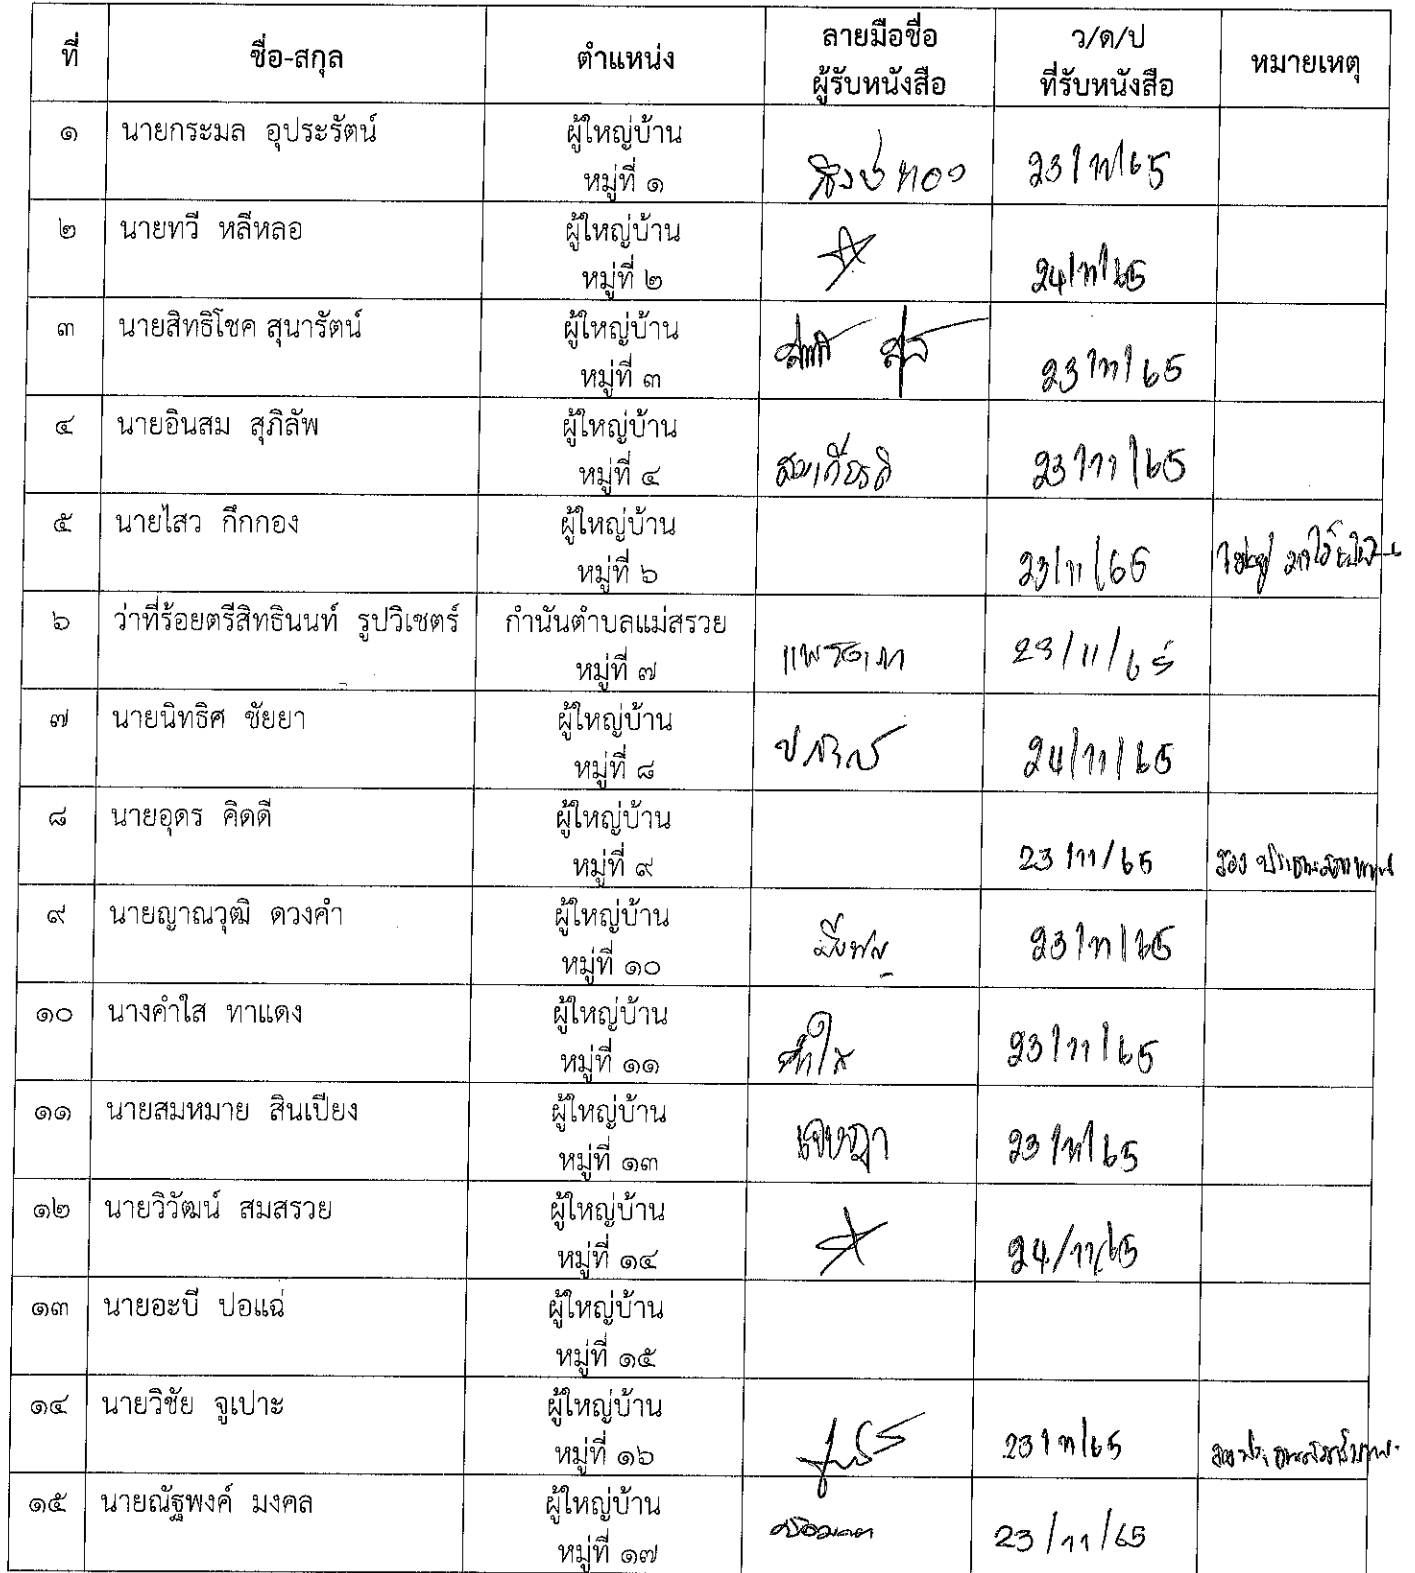 ที่ ชื่อ-สกุล ตำแหน่ง ลายมือชื่อ ว/ด/ป หมายเหตุ
ผู้รับหนังสือ ที่รับหนังสือ
๑ นายกระมล อุประรัตน์ ผู้ใหญ่บ้าน
หมู่ที่ ๑ 23/11/65
๒ นายทวี หลีหลอ ผู้ใหญ่บ้าน
หมู่ที่ ๒ 24/11/65
๓ นายสิทธิโชค สุนารัตน์ ผู้ใหญ่บ้าน
หมู่ที่ ๓ 23/11/65
๔ นายอินสม สุภิลัพ ผู้ใหญ่บ้าน
หมู่ที่ ๔ สมเกียรติ 23/11/65
๕ นายไสว กึกกอง ผู้ใหญ่บ้าน
หมู่ที่ ๖ 23/11/65
๖ ว่าที่ร้อยตรีสิทธินนท์ รูปวิเชตร์ กำนันตำบลแม่สรวย
หมู่ที่ ๗ 23/11/65
๗ นายนิทธิศ ชัยยา ผู้ใหญ่บ้าน
หมู่ที่ ๘ 24/11/65
๘ นายอุดร คิดดี ผู้ใหญ่บ้าน
หมู่ที่ ๙ 23/11/65
๙ นายญาณวุฒิ ดวงคำ ผู้ใหญ่บ้าน
หมู่ที่ ๑๐ 23/11/65
๑๐ นางคำใส ทาแดง ผู้ใหญ่บ้าน
หมู่ที่ ๑๑ คำใส 23/11/65
๑๑ นายสมหมาย สินเปียง ผู้ใหญ่บ้าน
หมู่ที่ ๑๓ เจษฎา 23/11/65
๑๒ นายวิวัฒน์ สมสรวย ผู้ใหญ่บ้าน
หมู่ที่ ๑๔ 24/11/65
๑๓ นายอะบี ปอแฉ่ ผู้ใหญ่บ้าน
หมู่ที่ ๑๕
๑๔ นายวิชัย จูเปาะ ผู้ใหญ่บ้าน
หมู่ที่ ๑๖ 23/11/65
๑๕ นายณัฐพงค์ มงคล ผู้ใหญ่บ้าน
หมู่ที่ ๑๗ 23/11/65